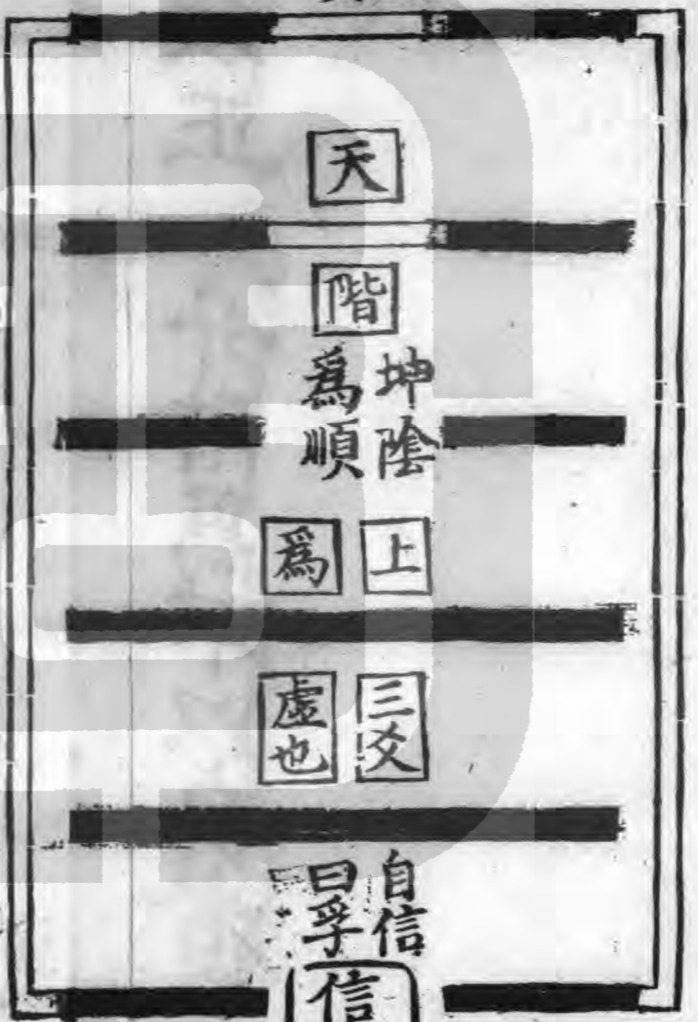 天
階
坤陰
爲順
上
爲
三爻
虛也
自信
曰孚
信